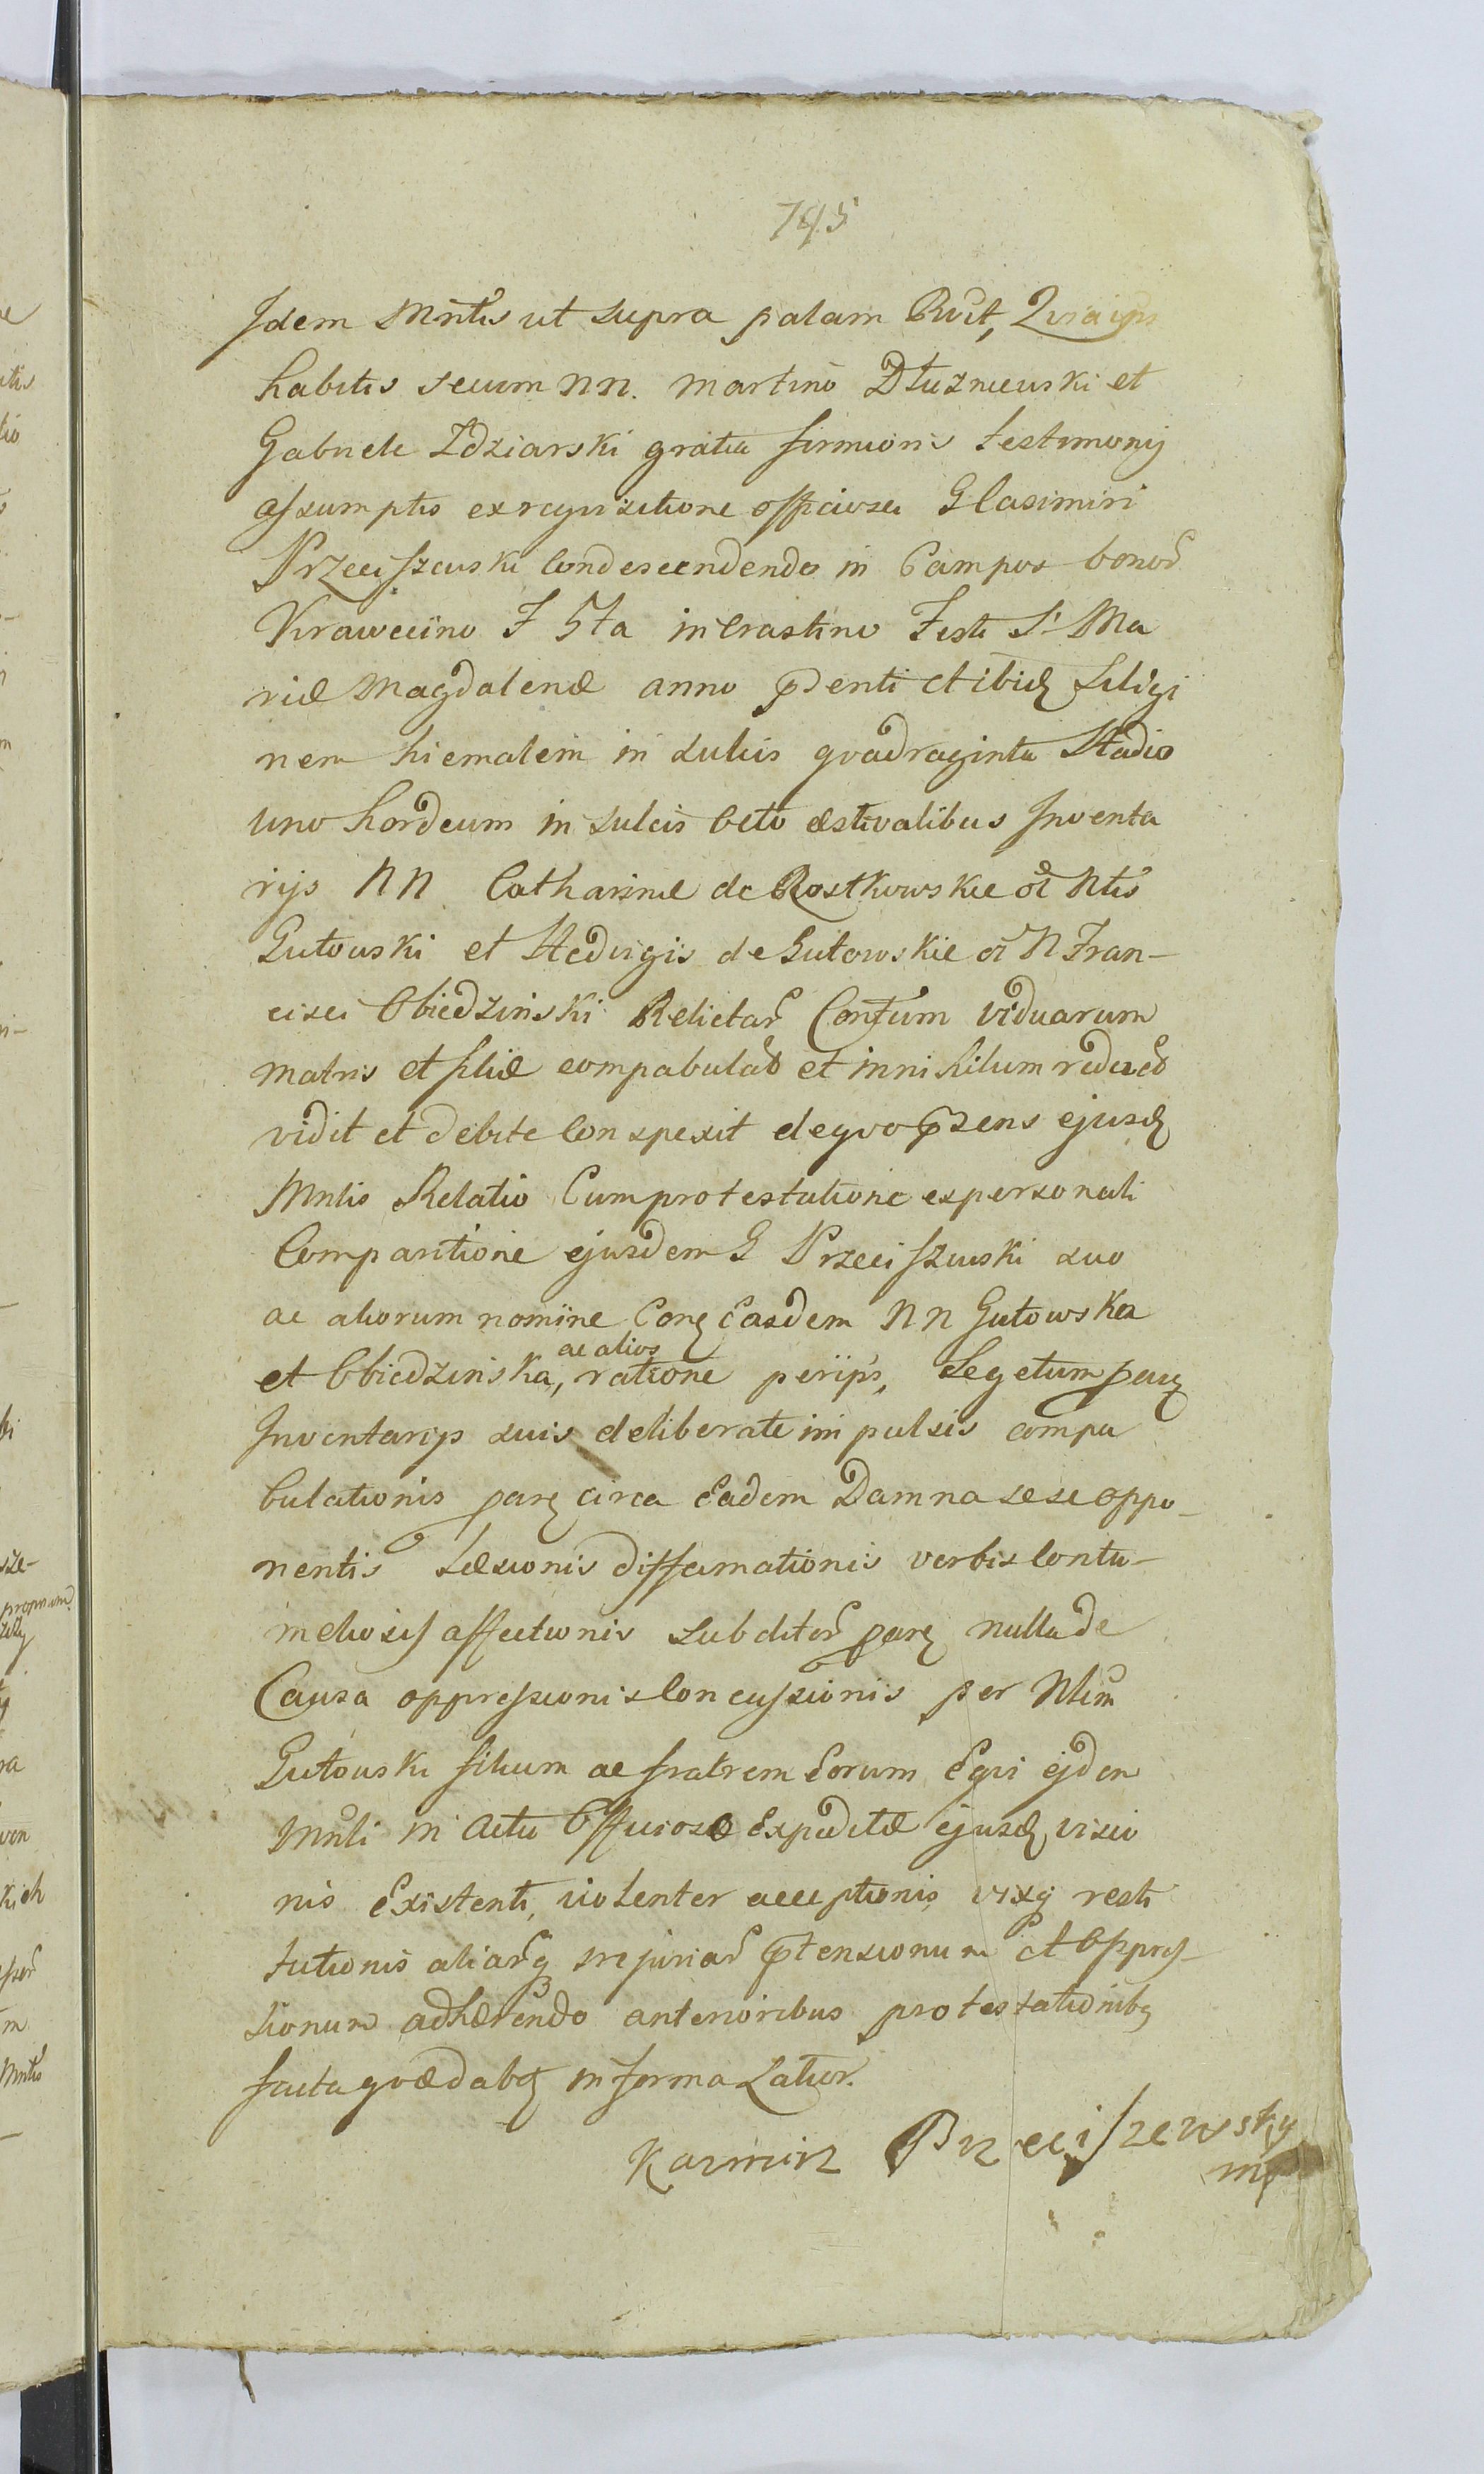 745
Idem Mntis ut supra palam Rvit, Quia ips
habitis secum NN. Martino Dłuzniewski et
Gabriele Zdziarski gratia firmioris testimonij
assumptis ex reqvisitione officiosa G Casimiri
Przeciszewski Condescendendo in Campos bonor
Krawecino F 5ta in Crastino Festi S. Ma
riæ Magdalenæ anno pdenti et ibid Siligi
nem hiemalem in sulcis qvadraginta Stadio
uno hordeum in sulcis octo æstivalibus Inventa
rijs NN Catharinæ de Rostkowskie ol Ntis
Gutowski et Hedvigis de Gutowskie ol N Fran-
cisci Obiedzinski Relictar Confum viduarum
matris et filiæ compabulat et in nihilum redact
vidit et debite Conspexit de qvo pdens ejusd
Mnlis Relatio Cum protestatione ex personali
Comparitione ejusdem G Przeciszewski suo
ac aliorum nomine Conq Easdem NN Gutowska
ac alios
et Obiedzinska, ratione per ips, Segetum parq
Inventarijs suis deliberate impulsis compa
bulationis parq circa Eadem Damna sese oppo-
nentis Læsionis diffamationis verbis Contu-
meliosis affectionis subditor parq nulla de
Causa oppressionis Concussionis per Nlem
Gutowski filium ac fratrem Eorum Eqvi ejdem
Mnli in Actu Officiosæ Expeditæ ejusd visio
nis Existenti, violenter acceptionis vixq resti
tutionis aliarq injuriar ptensionum et Oppres-
sionum adhærendo anterioribus protestationibq
facta qvædabq in forma Latior.
Kazmirz Przeciszewsky
mp